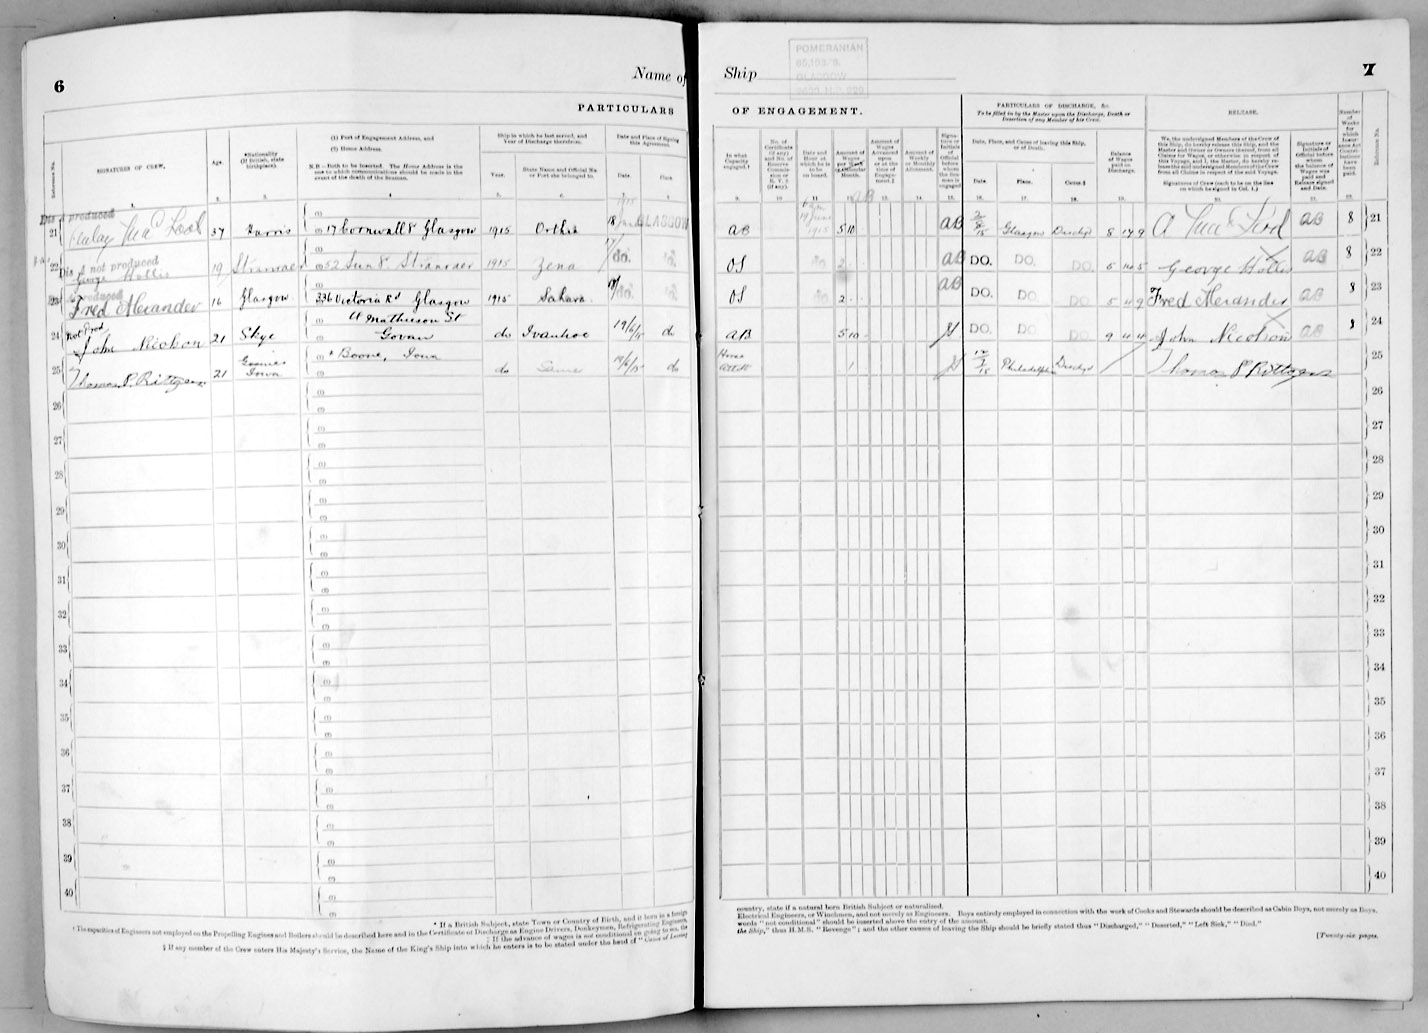 6
Name of
PARTICULARS
Reference No.
SIGNATURES OF CREW.
Age.
*Nationality
(If British, state
birthplace).
(1) Port of Engagement Address, and
(2) Home Address.
N.B.—Both to be inserted. The Home Address is the
one to which communications should be made in the
event of the death of the Seaman.
Ship in which he last served, and
Year of Discharge therefrom.
Year.
State Name and Official No.
or Port she belonged to.
Date and Place of Signing
this Agreement.
Date.
Place.
1. 2. 3. 4. 5. 6. 7. 8.
Dis A produced
21 37 Harris 17 Cornwall St Glasgow 1915 Orthia 18 GLASGOW
Dis A not produced
22 George Hollis 19 Stranraer 52 Sun St Stranraer 1915 Zena do. do.
produced
23 Fred Alexander 16 Glasgow 336 Victoria Rd Glasgow 1915 Sahara do. do.
Not Prod
24 John Nicolson 21 Skye 11 Mathieson St
Govan do Ivanhoe 19/6/15 do
25 Thomas P. Rottgers 21 Iowa Boone, Iowa do Same 19/6/15 do
26
27
28
29
30
31
32
33
34
35
36
37
38
39
40
* If a British Subject, state Town or Country of Birth, and if born in a foreign
† The capacities of Engineers not employed on the Propelling Engines and Boilers should be described here and in the Certificate of Discharge as Engine Drivers, Donkeymen, Refrigerating Engineers,
‡ If the advance of wages is not conditional on going to sea, the
§ If any member of the Crew enters His Majesty's Service, the Name of the King's Ship into which he enters is to be stated under the head of "Cause of Leaving
Ship
POMERANIAN
GLASGOW
7
OF ENGAGEMENT.
PARTICULARS OF DISCHARGE, &c.
To be filled in by the Master upon the Discharge, Death or
Desertion of any Member of his Crew.
RELEASE.
In what
Capacity
engaged.†
No. of
Certificate
(if any)
and No. of
Reserve
Commis-
sion or
R.V.2
(if any).
Date and
Hour at
which he is
to be
on board.
Amount of
Wages
per Week
or Calendar
Month.
Amount of
Wages
Advanced
upon
or at the
time of
Engage-
ment.‡
Amount of
Weekly
or Monthly
Allotment.
Signa-
ture or
Initials
of
Official
before
whom
the Sea-
man is
engaged
Date, Place, and Cause of leaving this Ship,
or of Death.
Date.
Place.
Cause.§
Balance
of Wages
paid on
Discharge.
We, the undersigned Members of the Crew of
this Ship, do hereby release this Ship, and the
Master and Owner or Owners thereof, from all
Claims for Wages, or otherwise in respect of
this Voyage, and I, the Master, do hereby re-
lease the said undersigned Members of the Crew
from all Claims in respect of the said Voyage.
Signatures of Crew (each to be on the line
on which he signed in Col. 1.)
Signature or
Initials of
Official before
whom
the balance of
Wages was
paid and
Release signed
and Date.
Number
of
Weeks
for
which
Insur-
ance Act
Contri-
butions
have
been
paid.
Reference No.
9. 10 11 12. 13. 14. 15. 16. 17. 18. 19. 20. 21. 22.
AB 5 10 AB 2/8/15 Glasgow Dischgd 8 17 9 AB 8 21
OS 2 AB DO. DO. DO. 5 10 5 George Hollis AB 8 22
OS 2 AB DO. DO. DO. 5 4 9 Fred Alexander AB 8 23
AB 5 10 DO. DO. DO. 9 4 4 John Nicolson AB 24
Horse
Attdt 1 Philadelphia Dischgd Thomas P Rottgers 25
26
27
28
29
30
31
32
33
34
35
36
37
38
39
40
country, state if a natural born British Subject or naturalised.
Electrical Engineers, or Winchmen, and not merely as Engineers. Boys entirely employed in connection with the work of Cooks and Stewards should be described as Cabin Boys, not merely as Boys.
words "not conditional" should be inserted above the entry of the amount.
the Ship," thus H.M.S. "Revenge"; and the other causes of leaving the Ship should be briefly stated thus "Discharged," "Deserted," "Left Sick," "Died."
[Twenty-six pages.